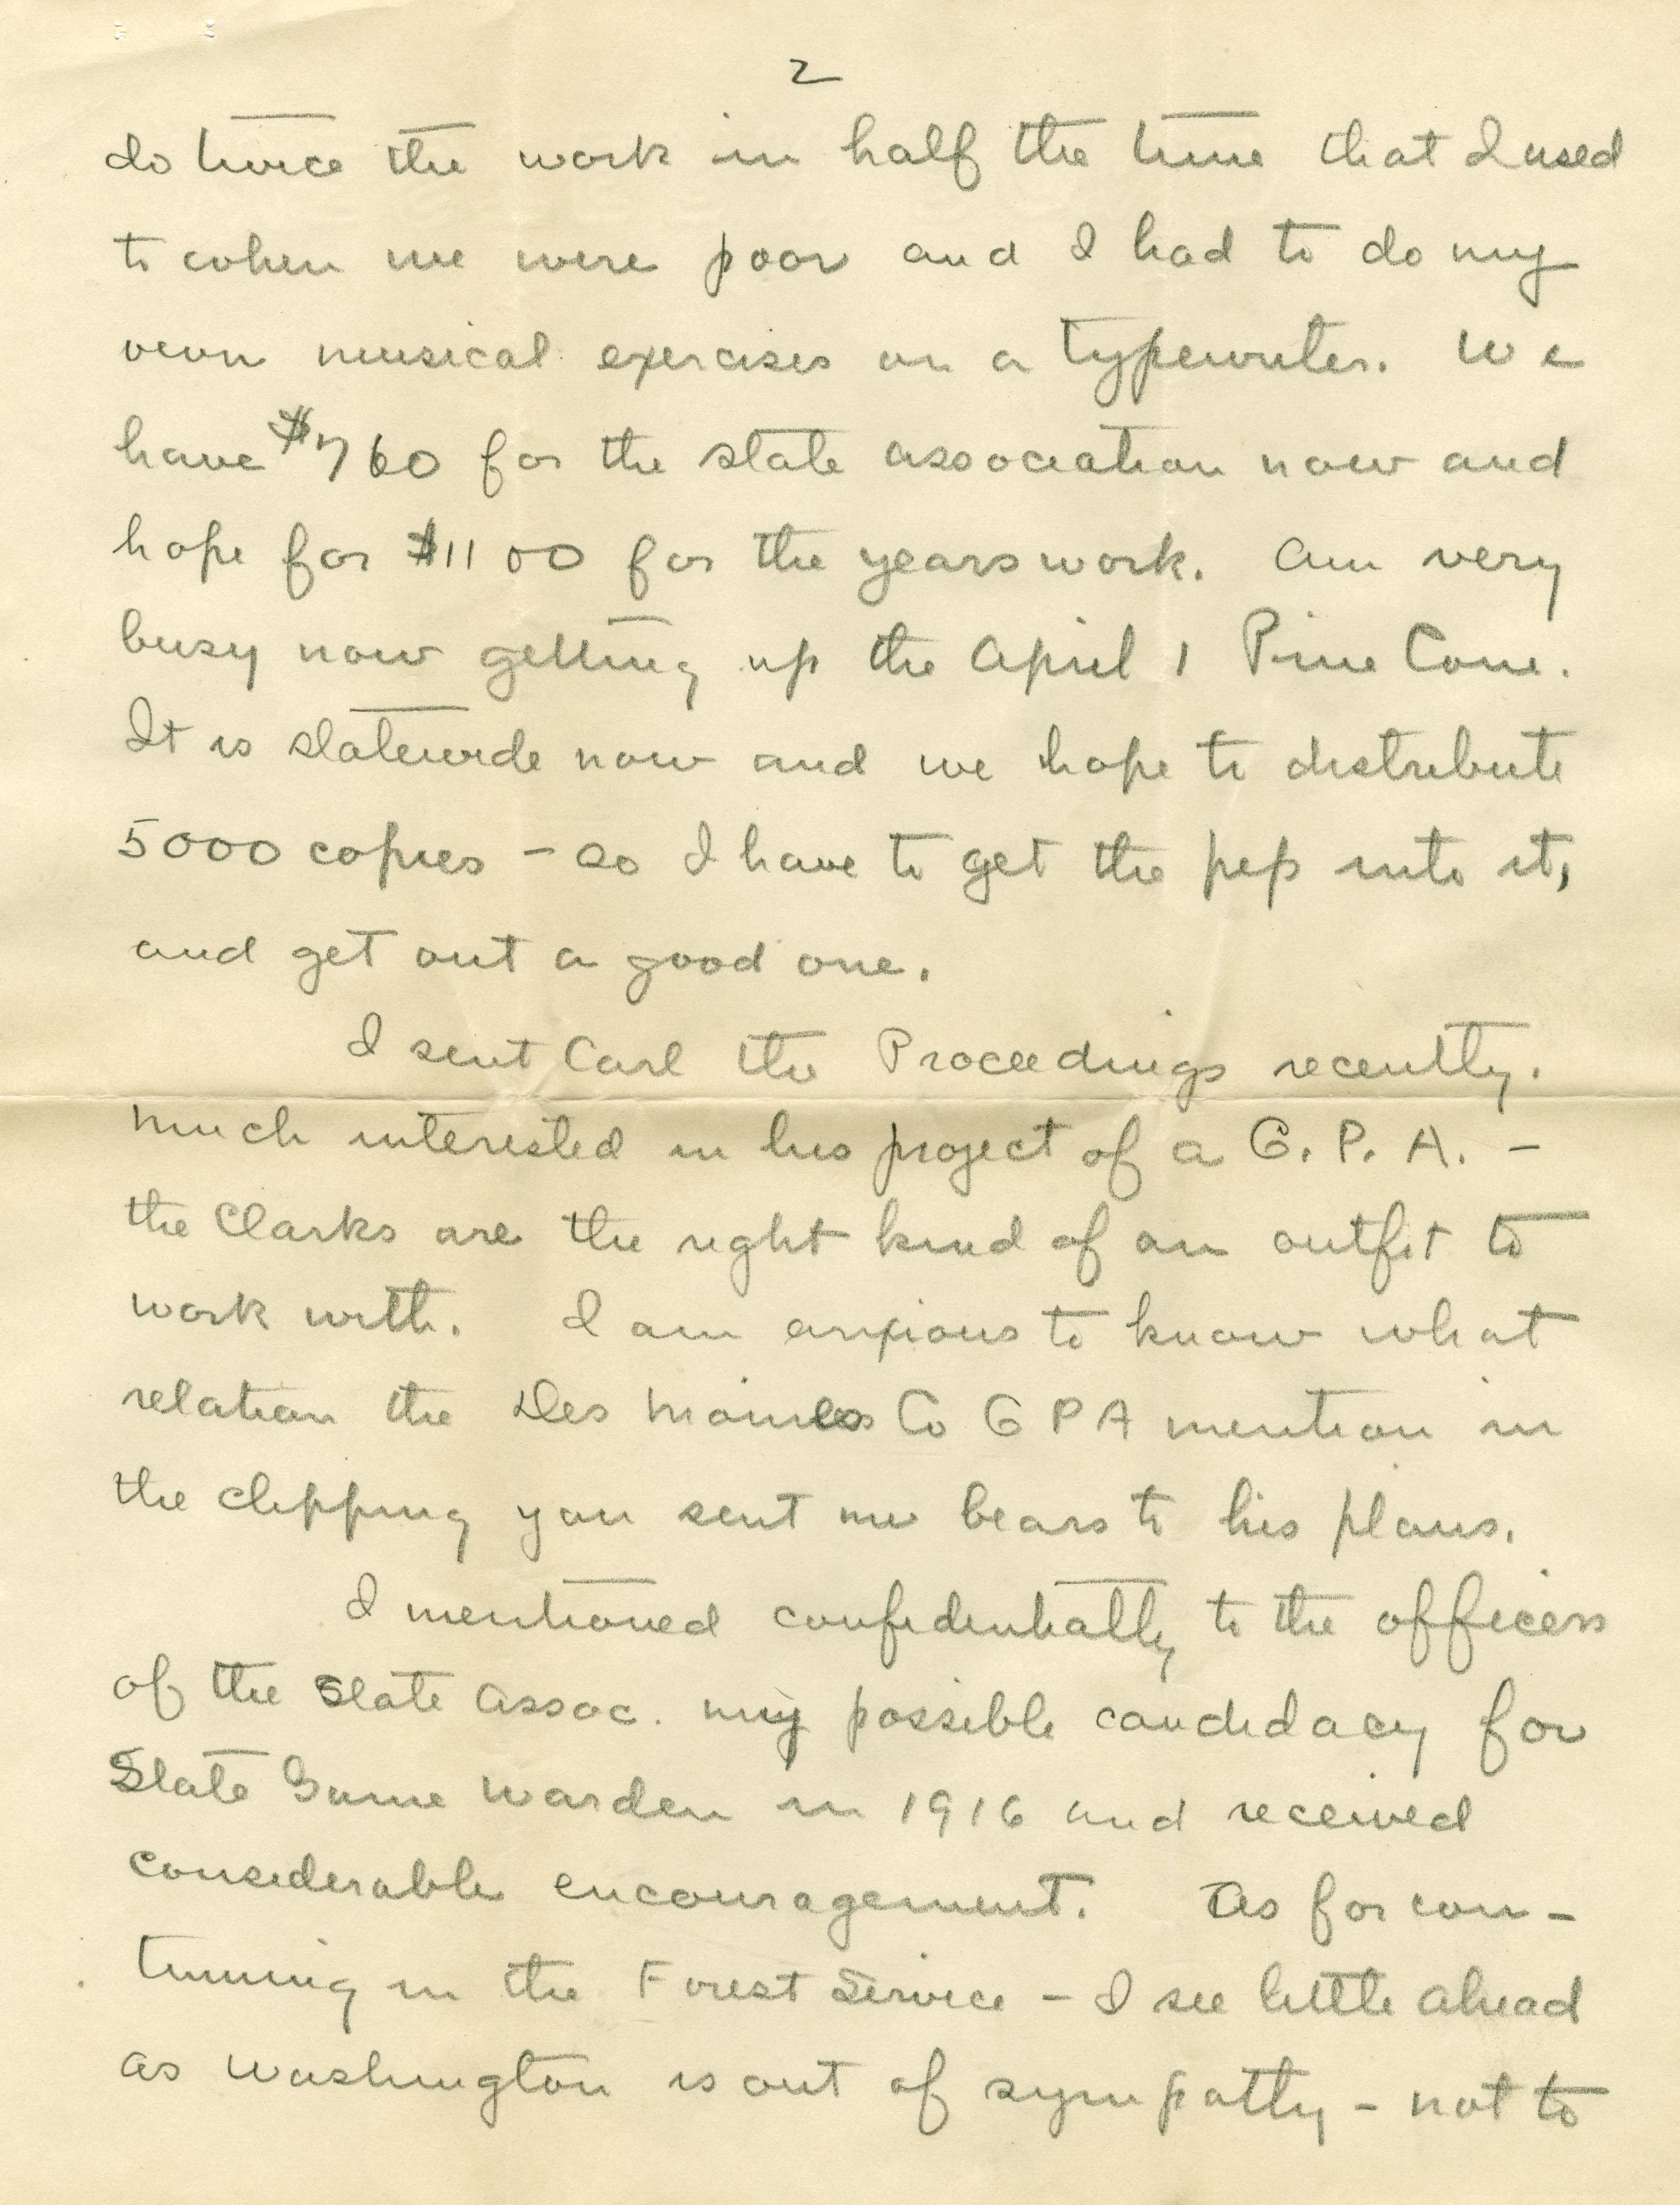 2
do twice the work in half the time that I used
to when we were poor and I had to do my
own musical exercises on a typewriter. We
have $760 for the state association now and
hope for $1100 for the years work. Am very
busy now getting up the April 1 Pine Cone.
It is statewide now and we hope to distribute
5000 copies - so I have to get the pep into it,
and get out a good one.
I sent Carl the Proceedings recently.
Much interested in his project of a G.P.A. -
the Clarks are the right kind of an outfit to
work with. I am anxious to know what
relation the Des Moines Co GPA mention in
the clipping you sent me bears to his plans.
I mentioned confidentially to the officers
of the State Assoc. my possible candidacy for
State Game Warden in 1916 and received
considerable encouragement. As for con-
tinuing in the Forest Service - I see little ahead
as Washington is out of sympathy - not to